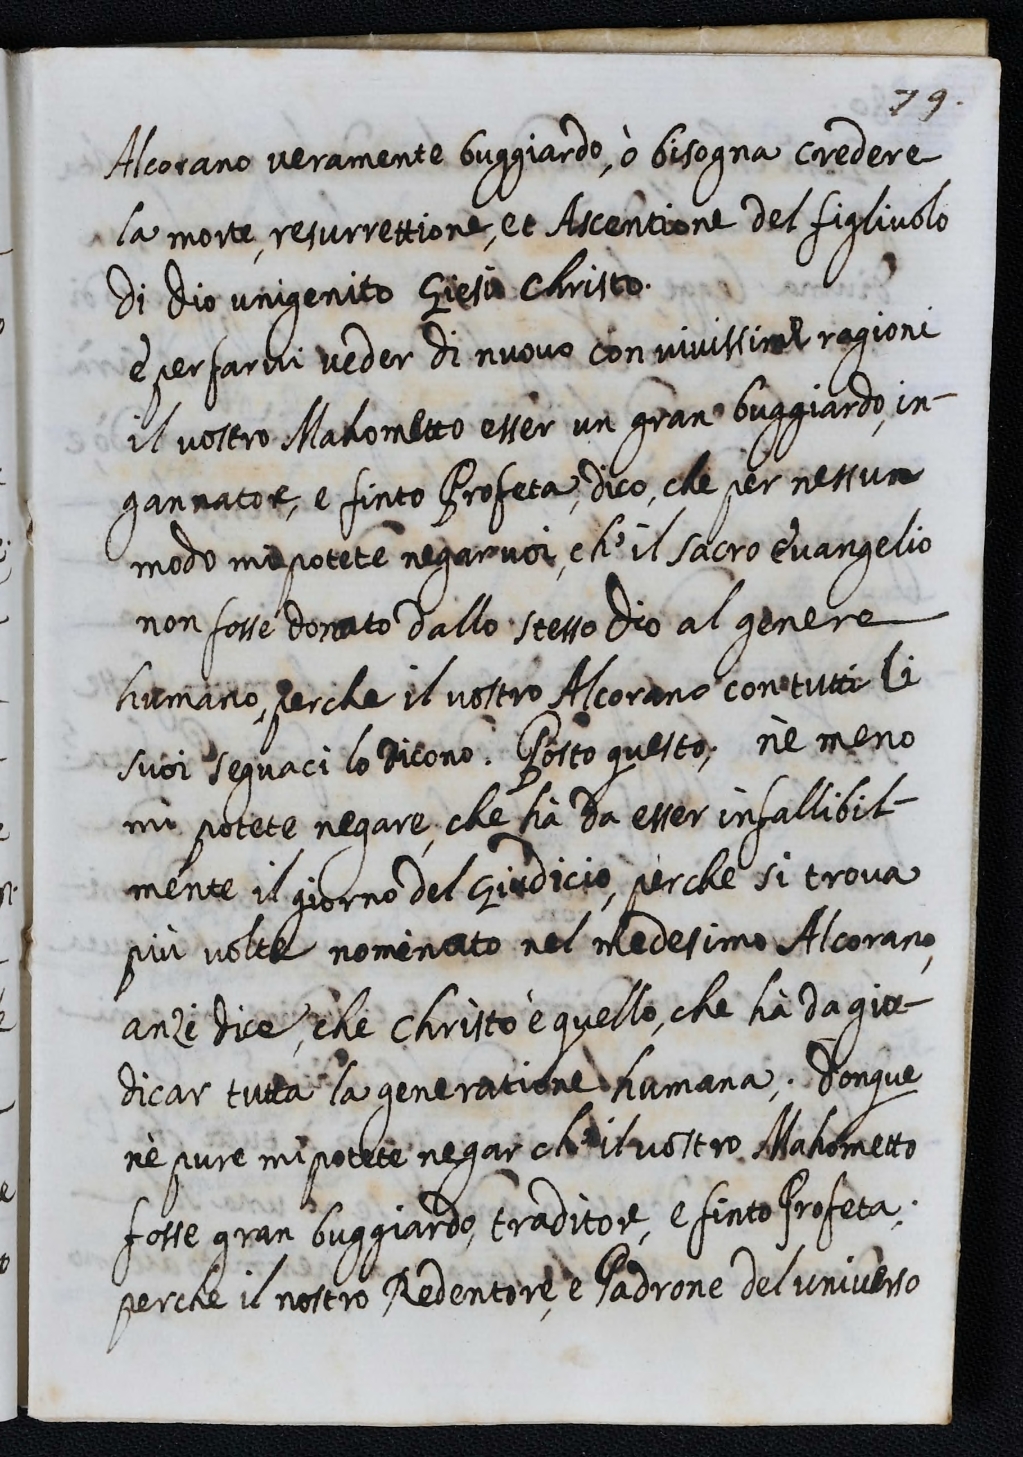 79.
Alcorano veramente buggiardo, ò bisogna credere
la morte, resurrettione, et Ascentione del figlivolo
di Dio unigenito Giesù Christo.
E per farvi veder di nuovo con vivissime ragioni
il vostro Mahometto esser un gran buggiardo, in-
gannatore, e finto Profeta, dico, che per nessun
modo mi potete negar voi, ch' il sacro Evangelio
non fosse donato dallo stesso Dio al genere
humano, perche il vostro Alcorano con tutti li
suoi seguaci lo dicono. Posto questo, nè meno
mi potete negare, che hà da esser infallibil-
mente il giorno del Giudicio, perche si trova
più volte nominato nel medesimo Alcorano,
anzi dice, che Christo è quello, che hà da giu-
dicar tutta la generatione humana. Donque
nè pure mi potete negar ch' il vostro Mahometto
fosse gran buggiardo, traditore, e finto Profeta.
perche il nostro Redentore, e Padrone del universo